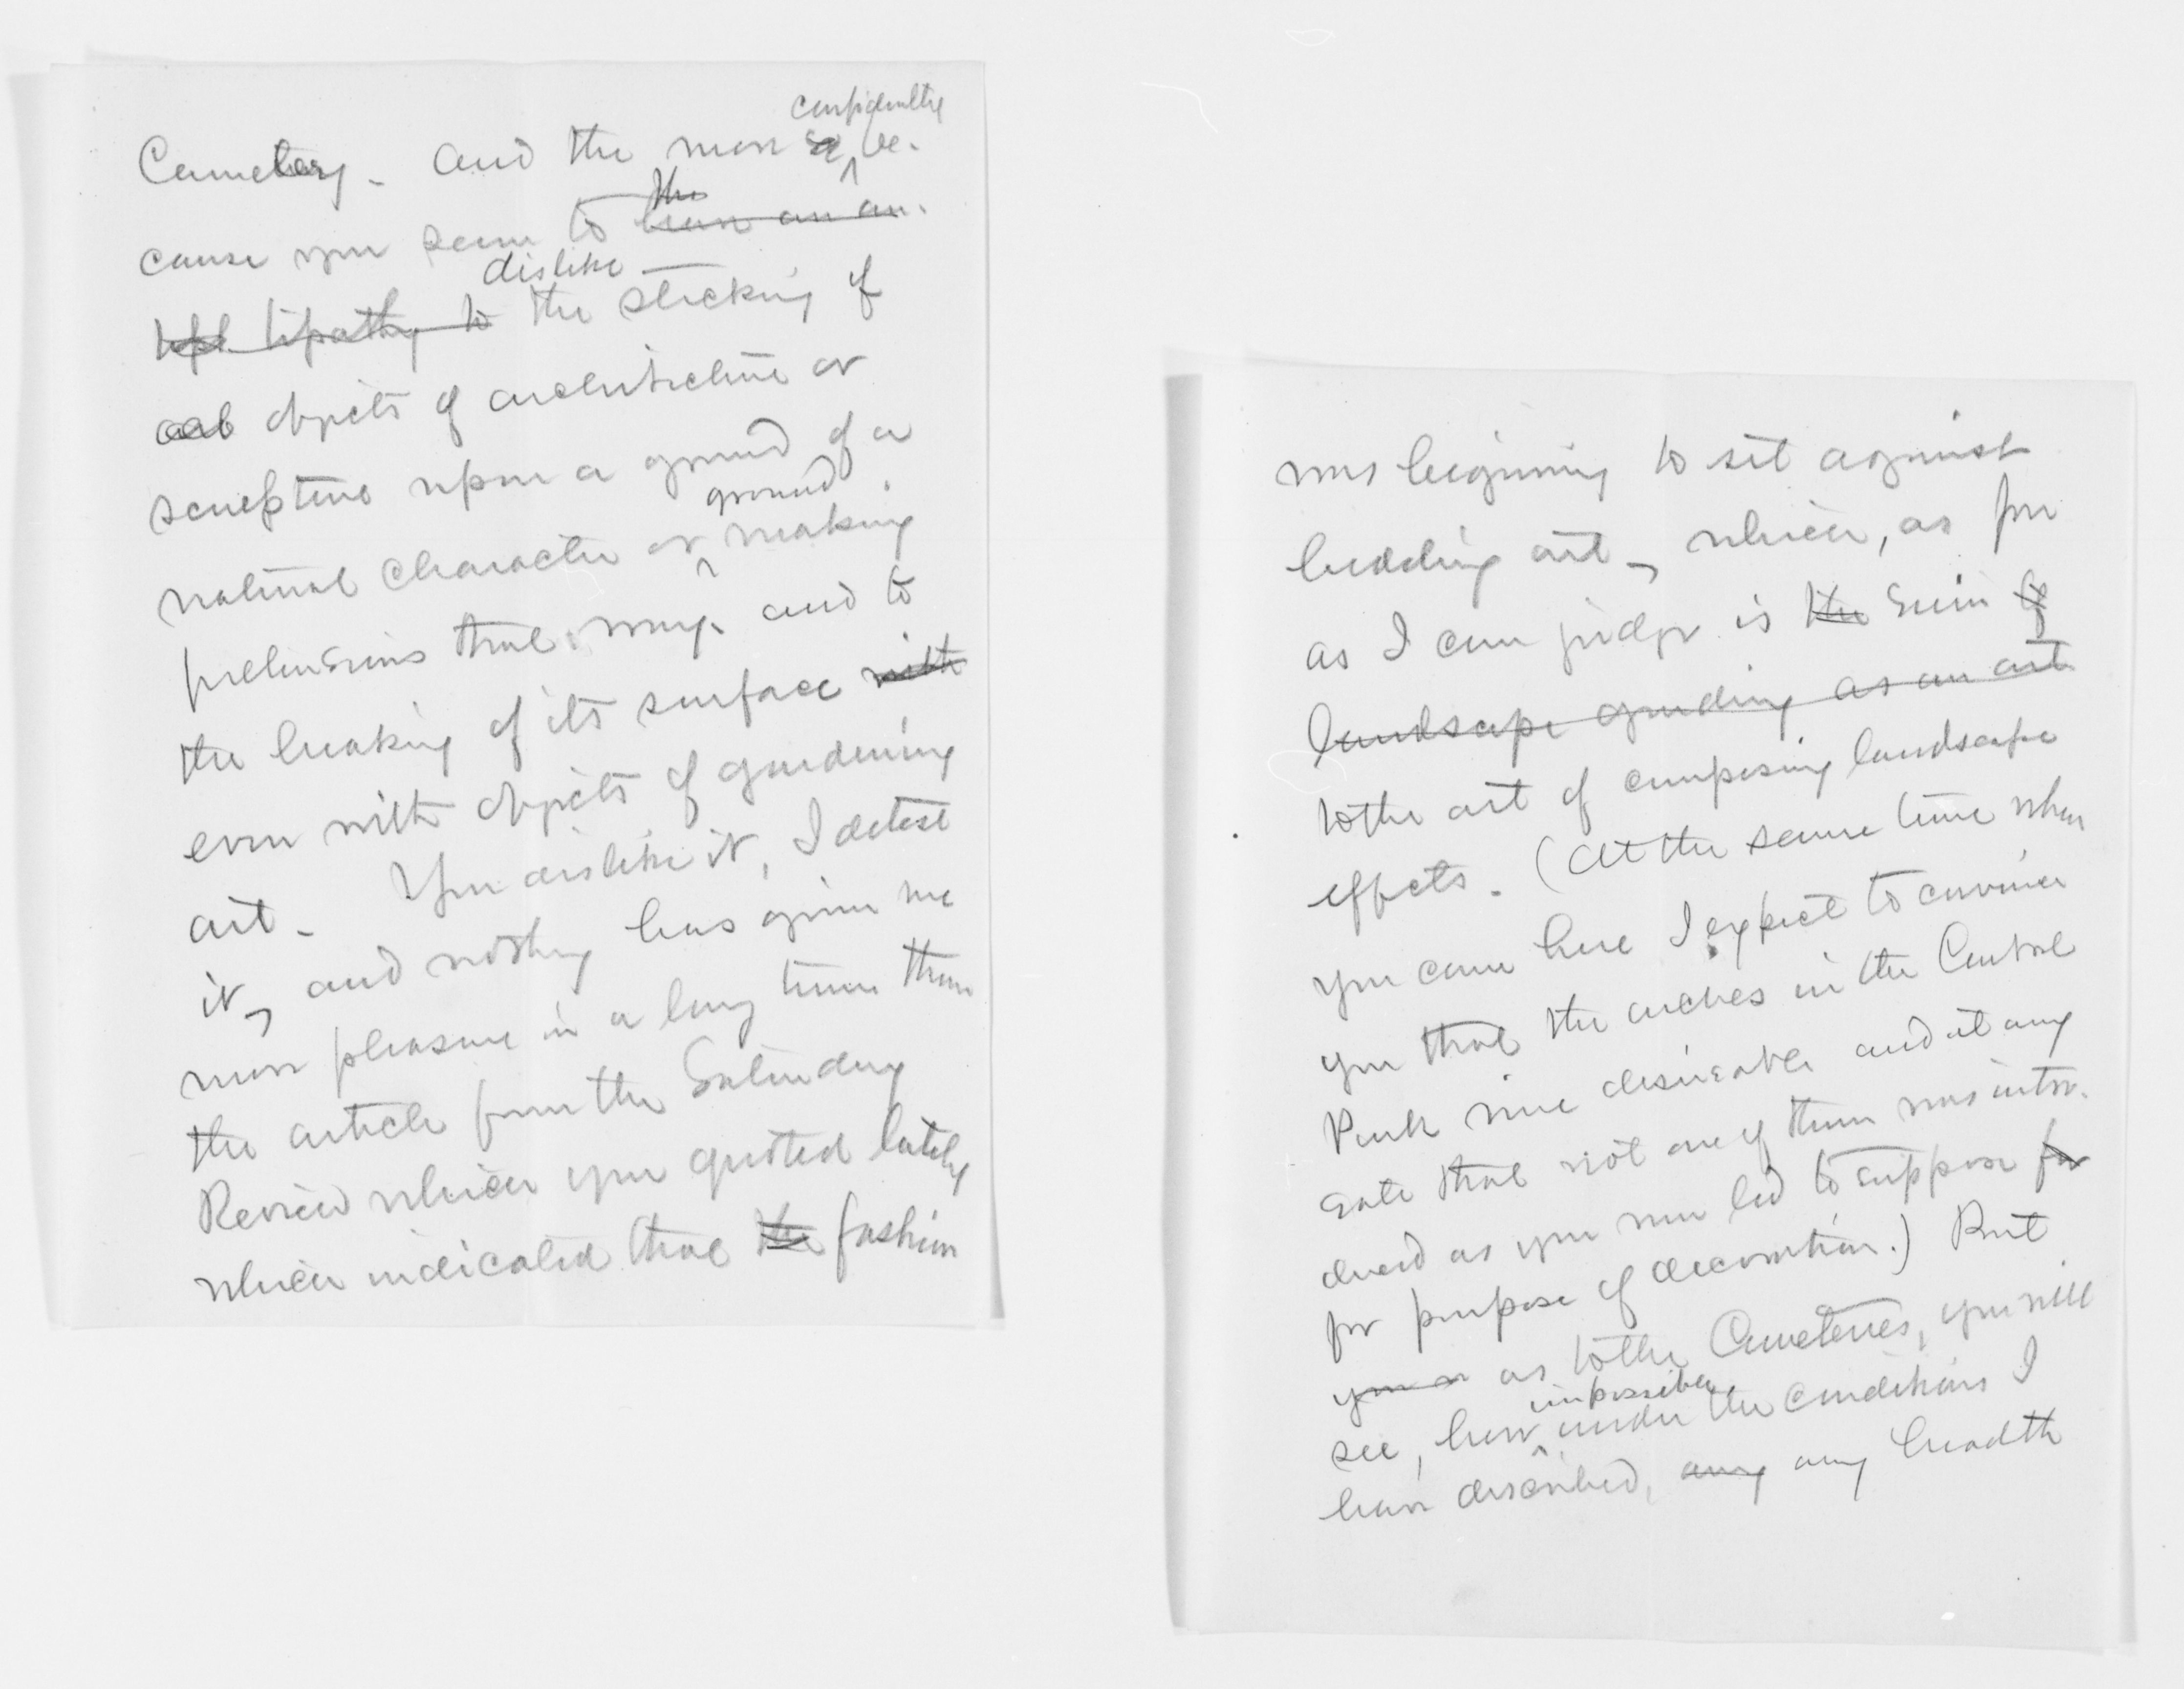 confidently
Cemetery - and the more so be-
the
cause you seem to have an an-
dislike
tipathy to the sticking of
objects of architecture or
sculpture upon a ground of a
ground
natural character or making
pretensions that way and to
the breaking of its surface with
even with objects of gardening
art - You dislike it, I detest
it, and nothing has given me
more pleasure in a long time than
the article from the Saturday
Review which you quoted lately
which indicated that the fashion
was begining to set against
bedding art, which, as far
as I can judge is the ruin of
landscape gardening as an art
to the art of composing landscape
effects. (At the same time when
you come here I expect to convince
you that the arches in the Central
Park were desireable and at any
rate that not one of them was intro-
duced as you were led to suppose for
for purpose of decoration.) But
as to the Cemeteries, you will
impossible
see, how under the conditions I
have described, any any breadth